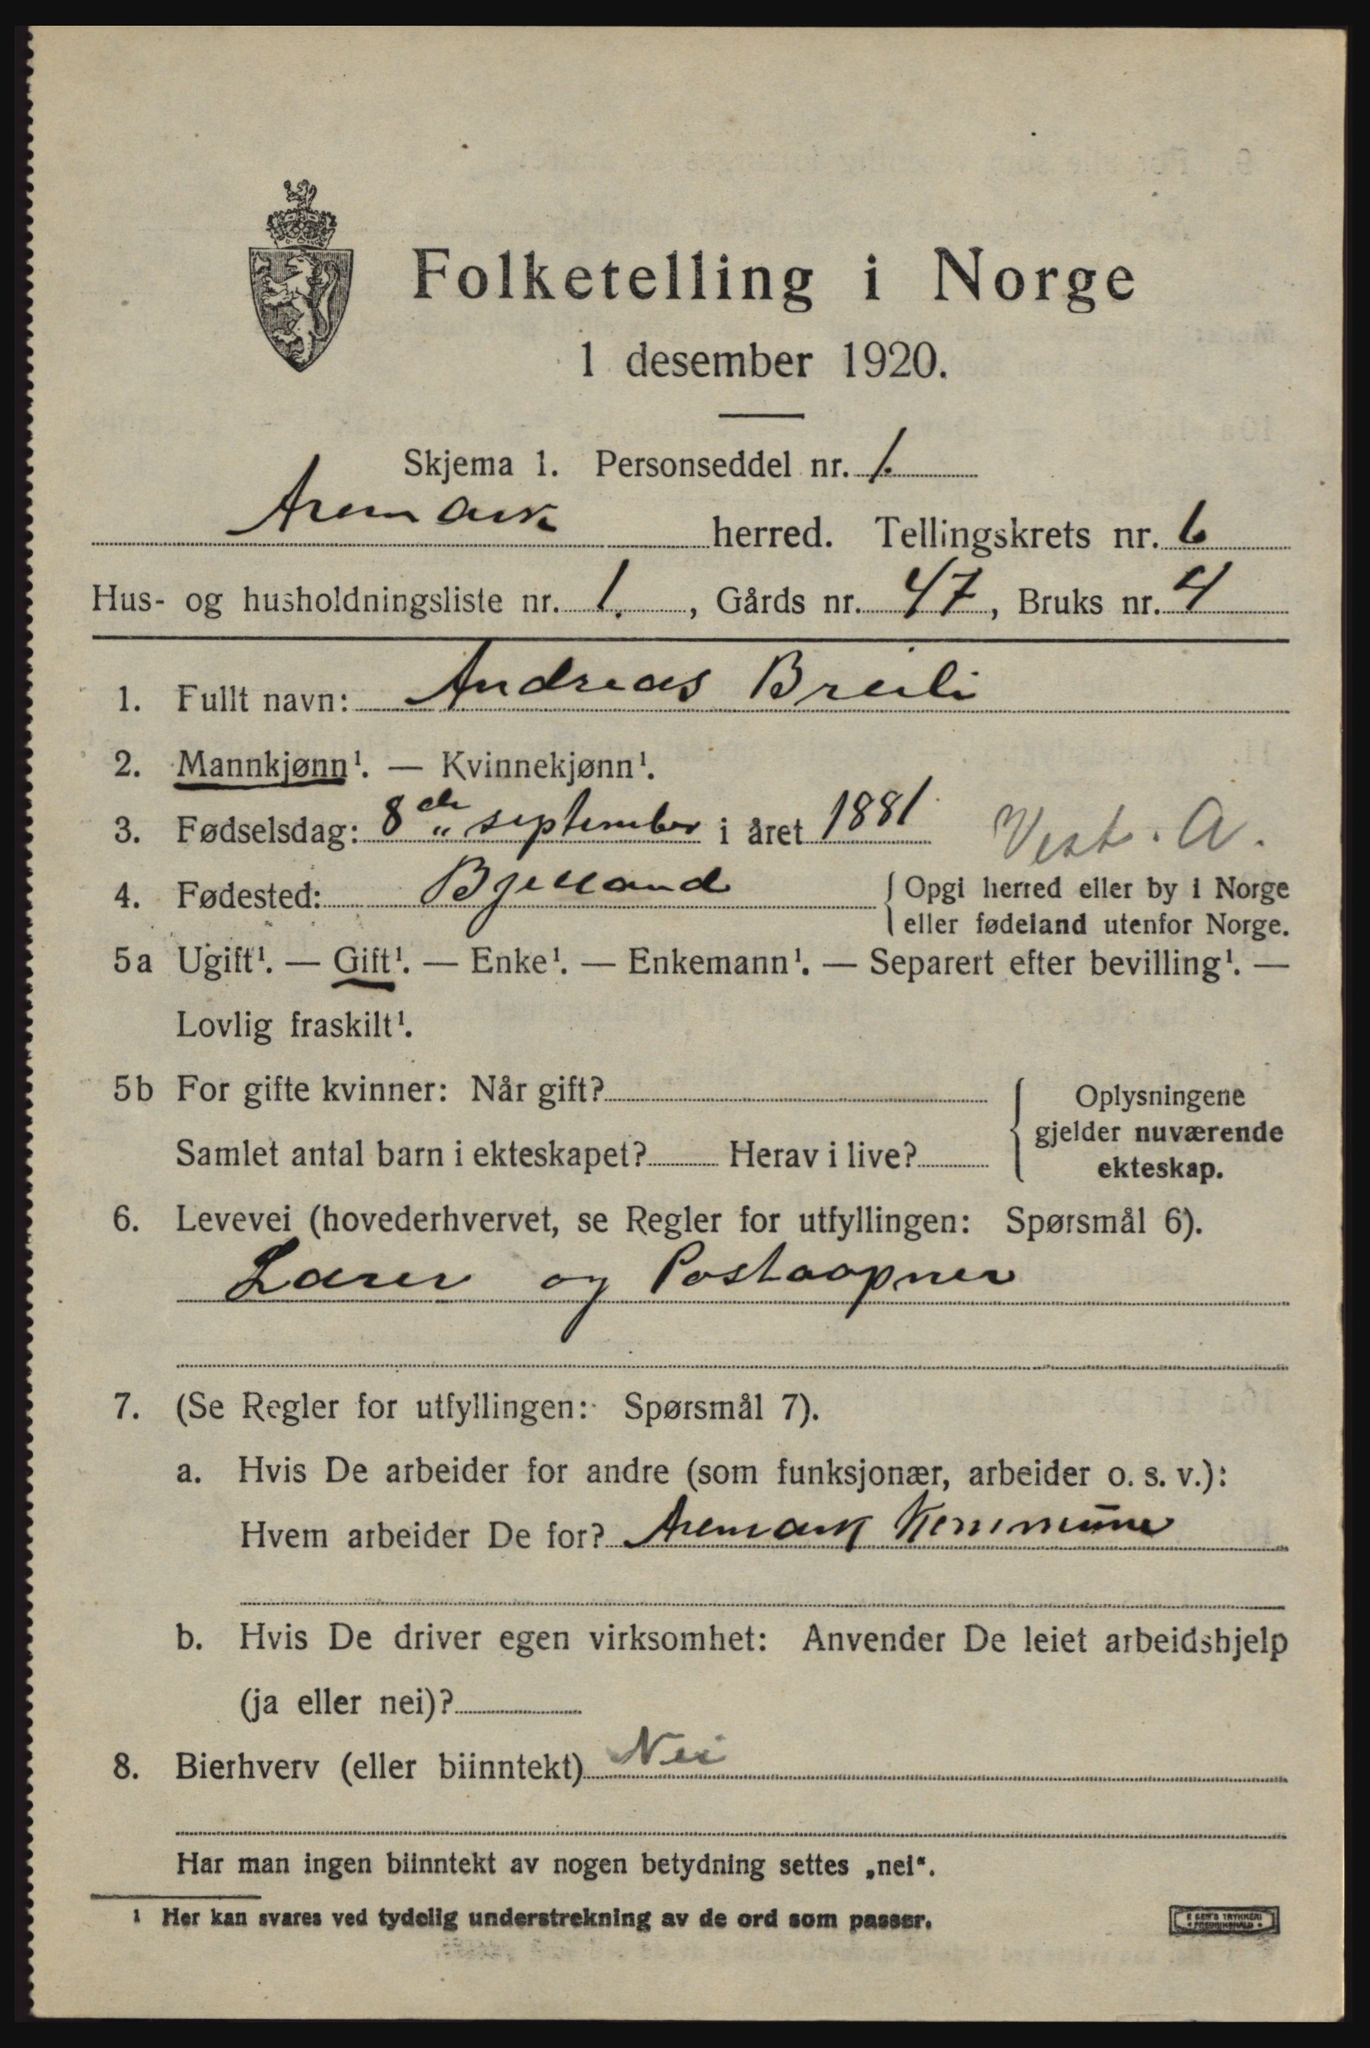 Folketelling i Norge
1 desember 1920.
Skjema 1. Personseddel nr. 1.
Aremark herred. Tellingskrets nr. 6
Hus- og husholdningsliste nr. 1., Gårds nr. 47, Bruks nr. 4
1. Fullt navn: Andreas Breili
2. Mannkjønn¹. — Kvinnekjønn¹.
3. Fødselsdag: 8de september i året 1881 Vest. A.
4. Fødested: Bjelland { Opgi herred eller by i Norge
eller fødeland utenfor Norge.
5a Ugift¹. — Gift¹. — Enke¹. — Enkemann¹. — Separert efter bevilling¹. —
Lovlig fraskilt¹.
5b For gifte kvinner: Når gift? { Oplysningene
gjelder nuværende
Samlet antal barn i ekteskapet? Herav i live? ekteskap.
6. Levevei (hovederhvervet, se Regler for utfyllingen: Spørsmål 6).
Lærer og Postaapner
7. (Se Regler for utfyllingen: Spørsmål 7).
a. Hvis De arbeider for andre (som funksjonær, arbeider o. s. v.):
Hvem arbeider De for? Aremark Kommune
b. Hvis De driver egen virksomhet: Anvender De leiet arbeidshjelp
(ja eller nei)?
8. Bierhverv (eller biinntekt) Nei
Har man ingen biinntekt av nogen betydning settes „nei“.
¹ Her kan svares ved tydelig understrekning av de ord som passer.